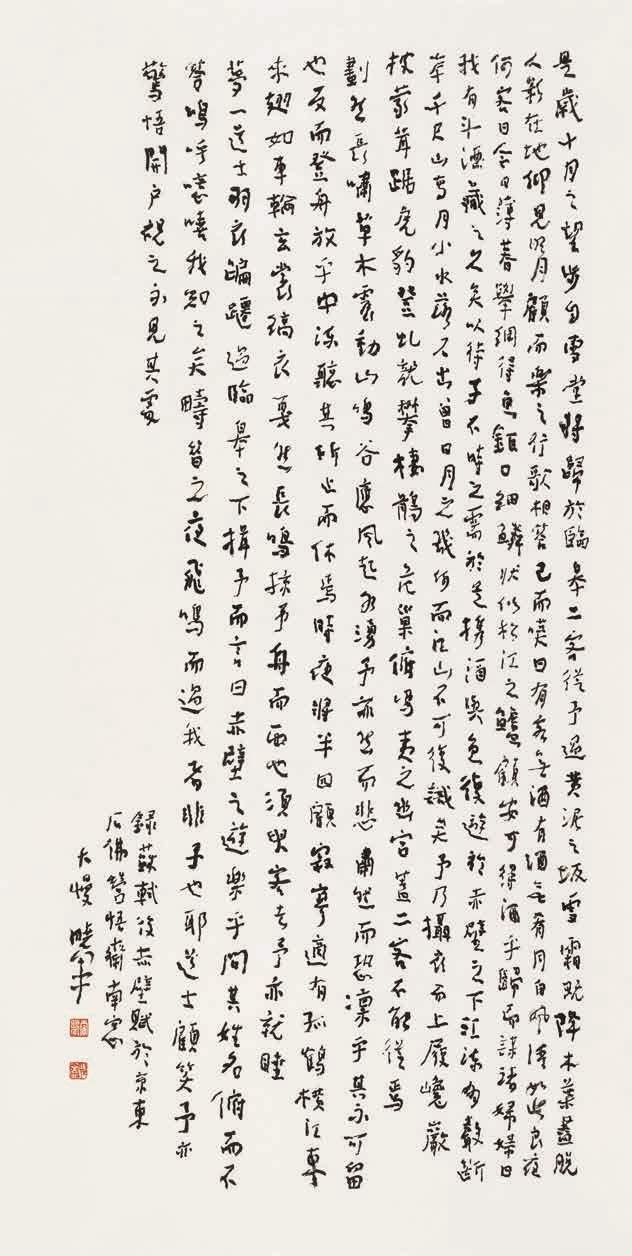 是歲十月之望步自雪堂將歸於臨皋二客從予過黃泥之坂雪霜既降木葉盡脫
人影在地仰見明月顧而樂之行歌相答已而嘆曰有客無酒有酒無肴月白風清如此良夜
何客曰今日薄暮舉網得魚鉅口細鱗狀似松江之鱸顧安可得酒乎歸而謀諸婦婦曰
我有斗酒藏之久矣以待子不時之需於是攜酒與魚復遊於赤壁之下江流有聲斷
岸千尺山高月小水落石出曾日月之幾何而江山不可復識矣予乃攝衣而上履巉巖
披蒙茸踞虎豹登虬龍攀棲鶻之危巢俯馮夷之幽宮蓋二客不能從焉
劃然長嘯草木震動山鳴谷應風起水湧予亦然而悲肅然而恐凜乎其不可留
也反而登舟放乎中流聽其所止而休焉時夜將半四顧寂寥適有孤鶴橫江東
來翅如車輪玄裳縞衣戛然長鳴掠予舟而西也須臾客去予亦就睡
夢一道士羽衣蹁躚過臨皋之下揖予而言曰赤壁之遊樂乎問其姓名俯而不
答嗚呼噫嘻我知之矣疇昔之夜飛鳴而過我者非子也耶道士顧笑予亦
驚悟開戶視之不見其處
錄蘇軾後赤壁賦於京東
石佛營悟齋南窗
大慢